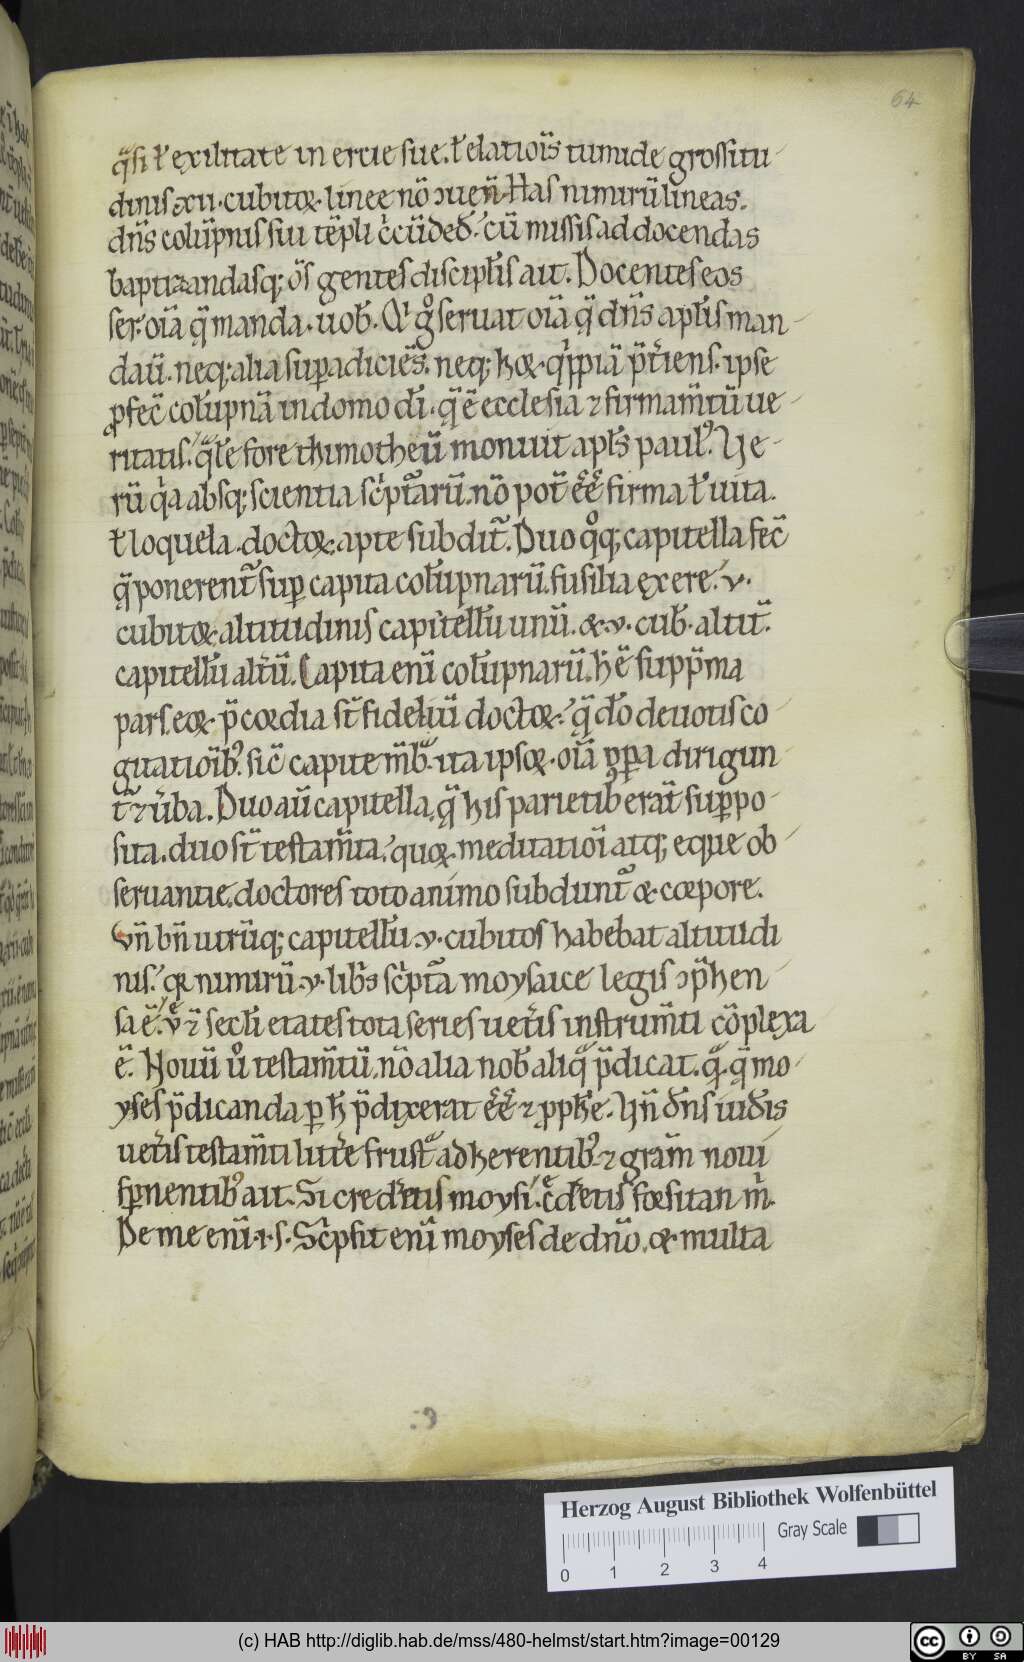 64
q̃si ł exilitate in ertie sue. ł elatiõis tumide grossitu
dinis xii. cubitoꝝ. linee nõ ↄuen̄. Has nimirũ lineas.
dñs colũpnis sui tẽpli c̊cũded. cũ missis ad docendas
baptizandasq; õs gentes discipłis ait. Docentes eos
ser. oĩa q̃ manda. uob̄. Q̊ g̊ seruat oĩa q̃ dñs apłis man
dauĩ. neq; alia supadiciẽs. neq; hoꝝ. q̊ppiã p̃t̊iens. ipse
ꝓfec̃ colupnã in domo dĩ. q̃ ẽ ecclesia ⁊ firmam̃tũ ue
ritatis. q̃le fore thimotheũ monuit apłs pauł. Ue
rũ q̊a absq; scientia sc̊ptarũ. nõ pot̃ ẽẽ firma ł uita.
ł loquela. doctoꝝ. apte subdit̃. Duo q̊q; capitella fec̃
q̃ ponerent̃ sup capita colupnarũ. fusilia ex ere. v.
cubitoꝝ. altitudinis capitellũ unũ. ⁊. v. cub̄. altit̃.
capitellũ alt̊ũ. Capita enĩ colupnarũ. h̄ ẽ supp̃ma
pars. eoꝝ. p̃cordia st̃ fideliũ doctoꝝ. q̃ dõ deuotis co
gitatiõib;. sic̃ capite mb̃. ita ipsoꝝ. oĩa opa dirigun
t̃ ⁊ ũba. Duo aũ capitella. q̃ his parietib; erãt suppo
sita. duo st̃ testam̃ta. quoꝝ. meditatiõi atq; eque ob
seruantie. doctores toto animo subdunt̃ ⁊ corpore.
Vñ bñ utrũq; capitellũ. v. cubitos habebat altitudi
nis. quia nimirũ. v. lib̊s sc̊pta moysaice legis ↄp̃hen
sa ẽ. v̊ ⁊ sec̃li etates tota series uet̊is instrum̃ti cõplexa
ẽ. Nouũ ů testam̃tũ. nõ alia nob̄ aliq̃ p̃dicat. q̃. q̃ mo
yses p̃dicanda p h̄ p̃dixerat ẽẽ ⁊ ꝓphe. Hñ dñs iudis
uet̊is testam̃ti litt̊e frust̃ adherentib; ⁊ grãm noui
spnentib; ait. Si credetis moysi. c̊detis forsitan m̊.
De me enĩ. i. s. Sc̊psit enĩ moyses de dño. ⁊ multa
Herzog August Bibliothek Wolfenbüttel
Gray Scale
0 1 2 3 4
(c) HAB http://diglib.hab.de/mss/480-helmst/start.htm?image=00129
cc BY SA